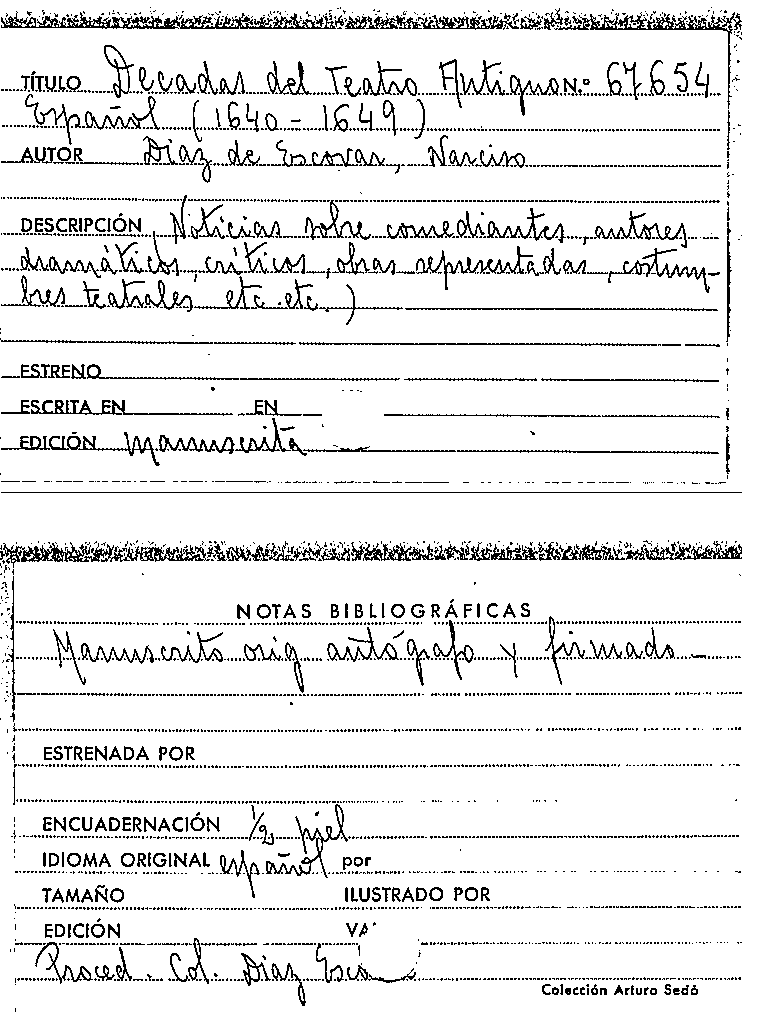 TÍTULO Decadas del Teatro Antiguo N.º 67654
Español (1640 - 1649)
AUTOR Diaz de Escovar, Narciso
DESCRIPCIÓN Noticias sobre comediantes, autores
dramáticos, críticos, obras representadas, costum-
bres teatrales etc. etc. )
ESTRENO
ESCRITA EN EN
EDICIÓN Manuscrita
NOTAS BIBLIOGRÁFICAS
Manuscrito orig autógrafo y firmado -
ESTRENADA POR
ENCUADERNACIÓN 1/2 piel
IDIOMA ORIGINAL español por
TAMAÑO ILUSTRADO POR
EDICIÓN
Proced. Col. Diaz Esco
Colección Arturo Sedó